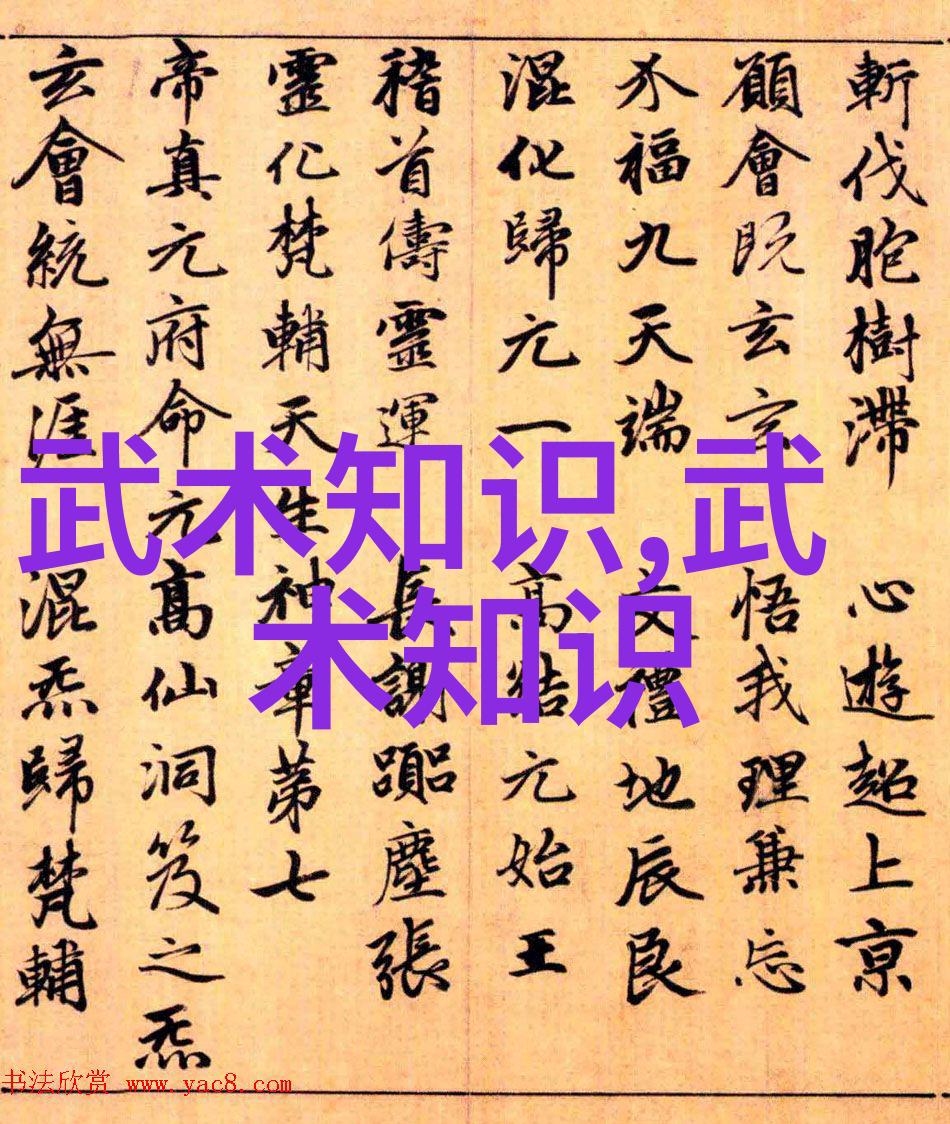 斬伐胞樹滯 心遊超上京
願會既玄玄 悟我理兼忘
介福九天端 交禮地辰良
混化歸元一 高結元始王
稽首儔靈運 長謝躡塵張
靈化梵輔天生神章第七
帝真元府命元高仙洞笈之炁
玄會統無涯混炁歸梵輔
武术知识,武
术知识
书法欣赏 www.yac8.com